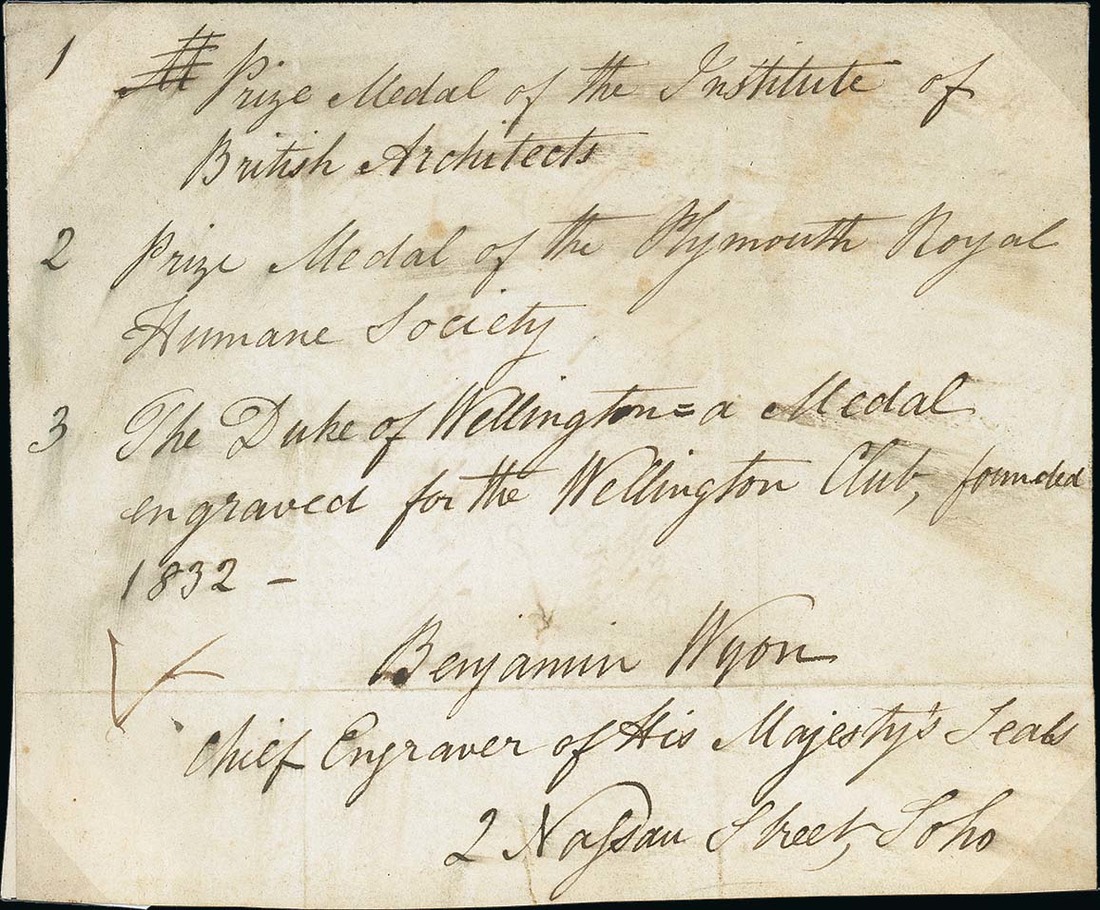 1 Prize Medal of the Institute of
British Architects
2 Prize Medal of the Plymouth Royal
Humane Society
3 The Duke of Wellington = a Medal
engraved for the Wellington Club, founded
1832 -
Benjamin Wyon
Chief Engraver of His Majesty's Seals
2 Nassau Street, Soho